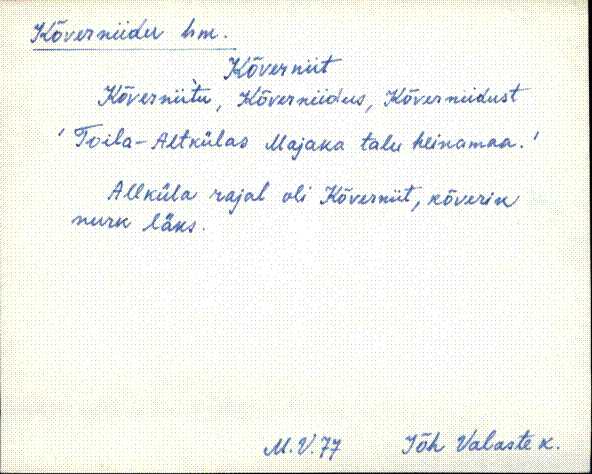 Kõverniidu hm.
Kõverniit
Kõverniìtu, Kõverniidus, Kõverniidust
' Toila-Altkülas Majaka talu heinamaa.'
Allküla rajal oli Kõverniit, kõverik
nurk läks.
M.V.77 Jõh Valaste k.